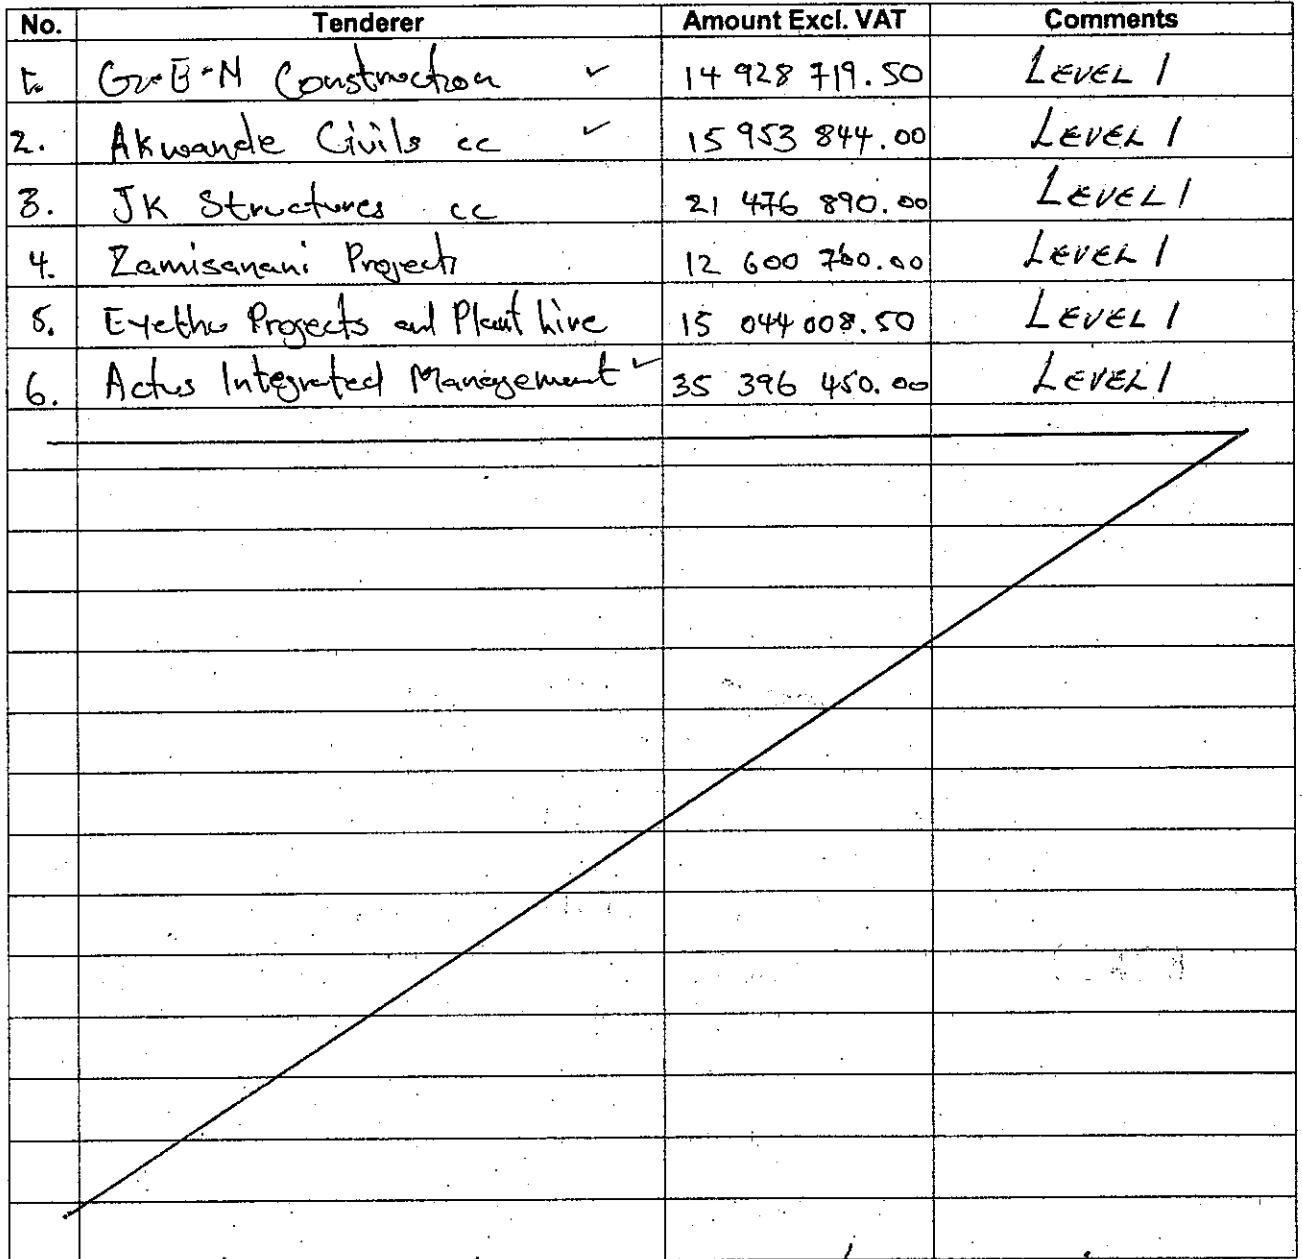 No. Tenderer Amount Excl. VAT Comments
1. G-E-N Construction ✓ 14 928 719.50 LEVEL 1
2. Akwande Civils cc ✓ 15 953 844.00 LEVEL 1
3. JK Structures cc 21 476 890.00 LEVEL 1
4. Zamisanani Projects 12 600 760.00 LEVEL 1
5. Eyethu Projects and Plant hire 15 044 008.50 LEVEL 1
6. Actus Integrated Management ✓ 35 396 450.00 LEVEL 1